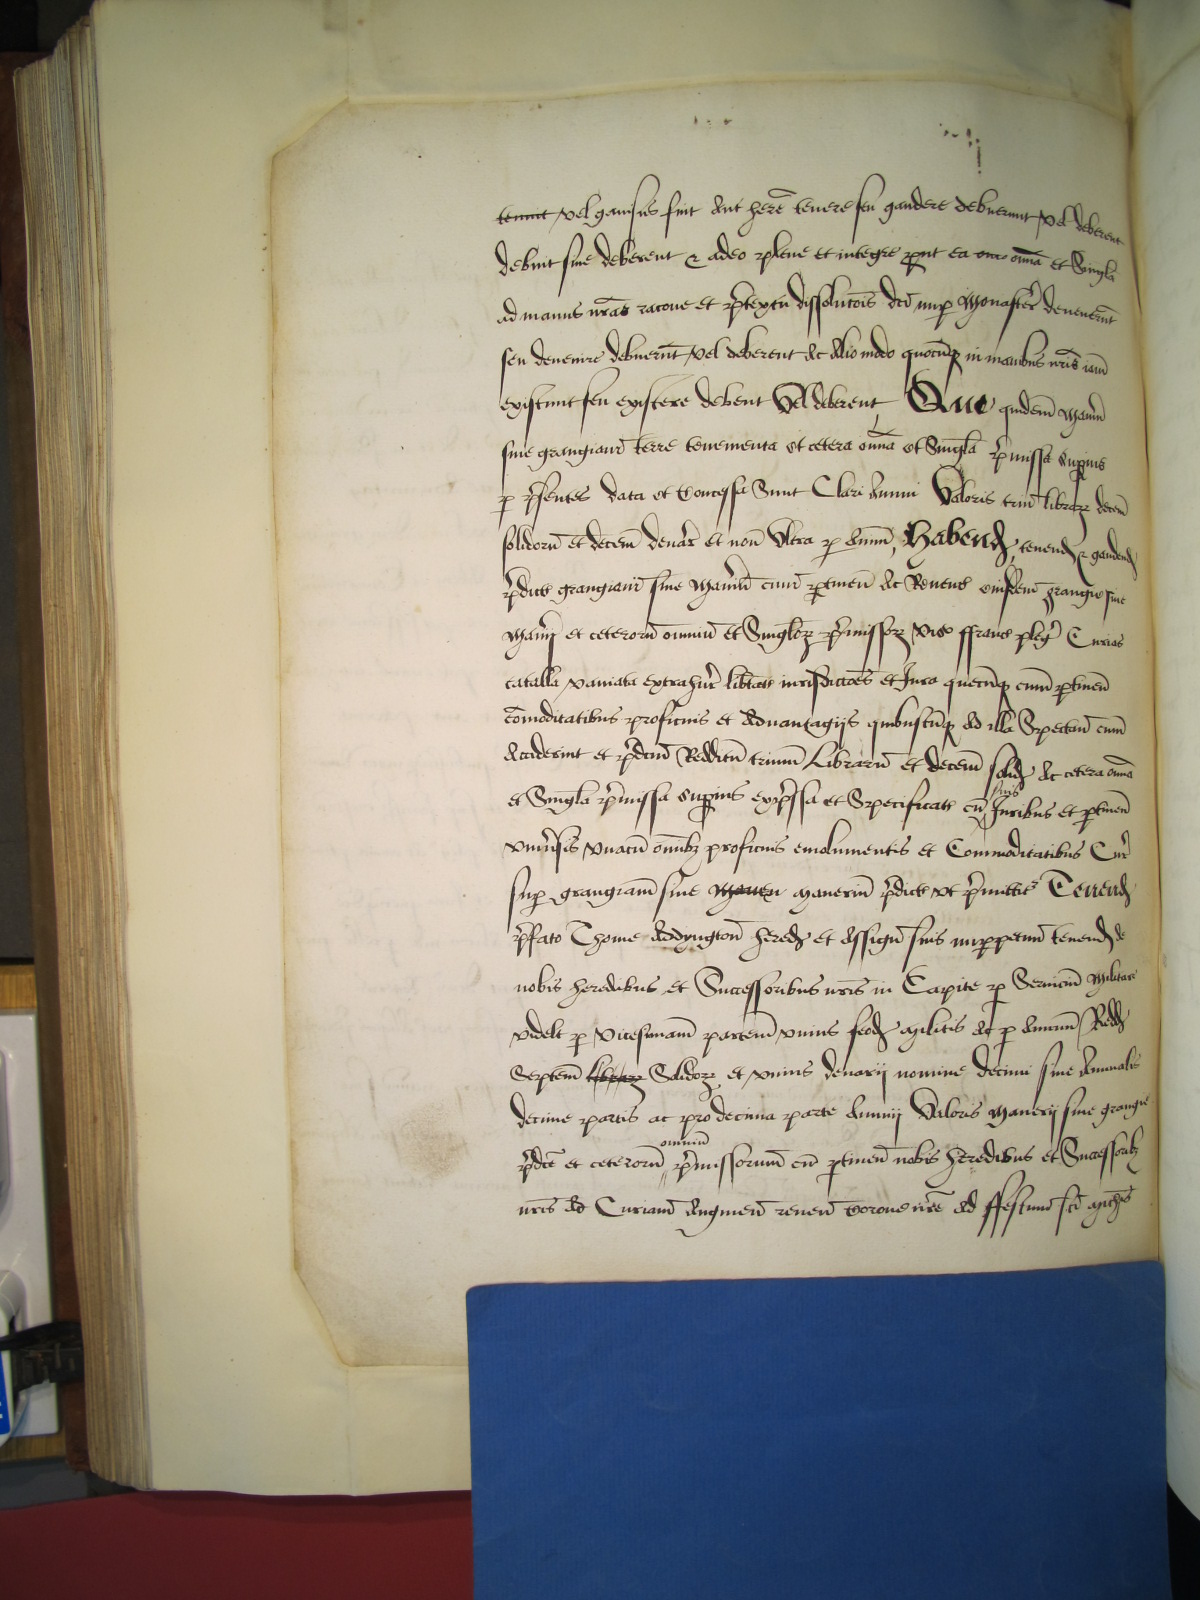 tenuit vel gavisus fuit aut here tenere seu gaudere debuerunt vel deberent
debuit sive deberent & adeo plene et integre prout ea omnia et Singla
ad manus nras racone et pretextu dissolucois dci nup Monaster devenerunt
seu devenire debuerunt vel deberent ac Alio modo quocunq in manibus nris iam
existunt seu existere debent Vel deberent Que quidem Maner
sive grangiam terre tenementa et cetera omia et Singla pmissa Supius
p psentes data et Concessa Sunt Clari Annui Valoris trium librar decem
solidoru et decem denar et non Ultra p Annu Habend tenend & gaudend
pdict grangiam sive Maneriu cum ptinen Ac Revenc eiusdem grangie sive
Manerij et ceteroru omniu et Singlor pmissor vis ffranc pleg Curias
catalla vaviata extrahur libtat iurisdiccoes et Jura quecunq cum ptinen
comoditatibus proficuis et Advantagijs quibuscuq Ad illa Spectan cum
Acciderint et pdcm Redditu trium Libraru et decem solid Ac cetera omia
et Singla pmissa Supius expssa et Specificat cu suis Juribus et ptinen
univsis unacu omibz proficuis emolumentis et Commoditatibus Cur
sup grangiam sive manerium pdict ut pmittit Tenend
pfato Thome Addyngton hered et Assign suis imppetuum tenend de
nobis heredibus et Successoribus nris in Capite p Servicium Militare
videlt p Vicesimam partem unius feod militis Ac p Annum Redd
Septem librar Solidor et unius denarij nomine decimi sive Annualis
decime partis ac pro decima parte Annuij Valoris Manerij sive grangie
pdce et ceterorum omnium pmissorum cu ptinen nobis heredibus et Successoribz
nris Ad Curiam Augmen reven Corone nre Ad ffestum sci Michis